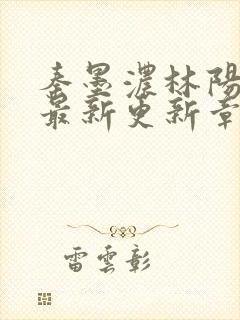 秦墨濃林陽
最新更新章
雷雲彰